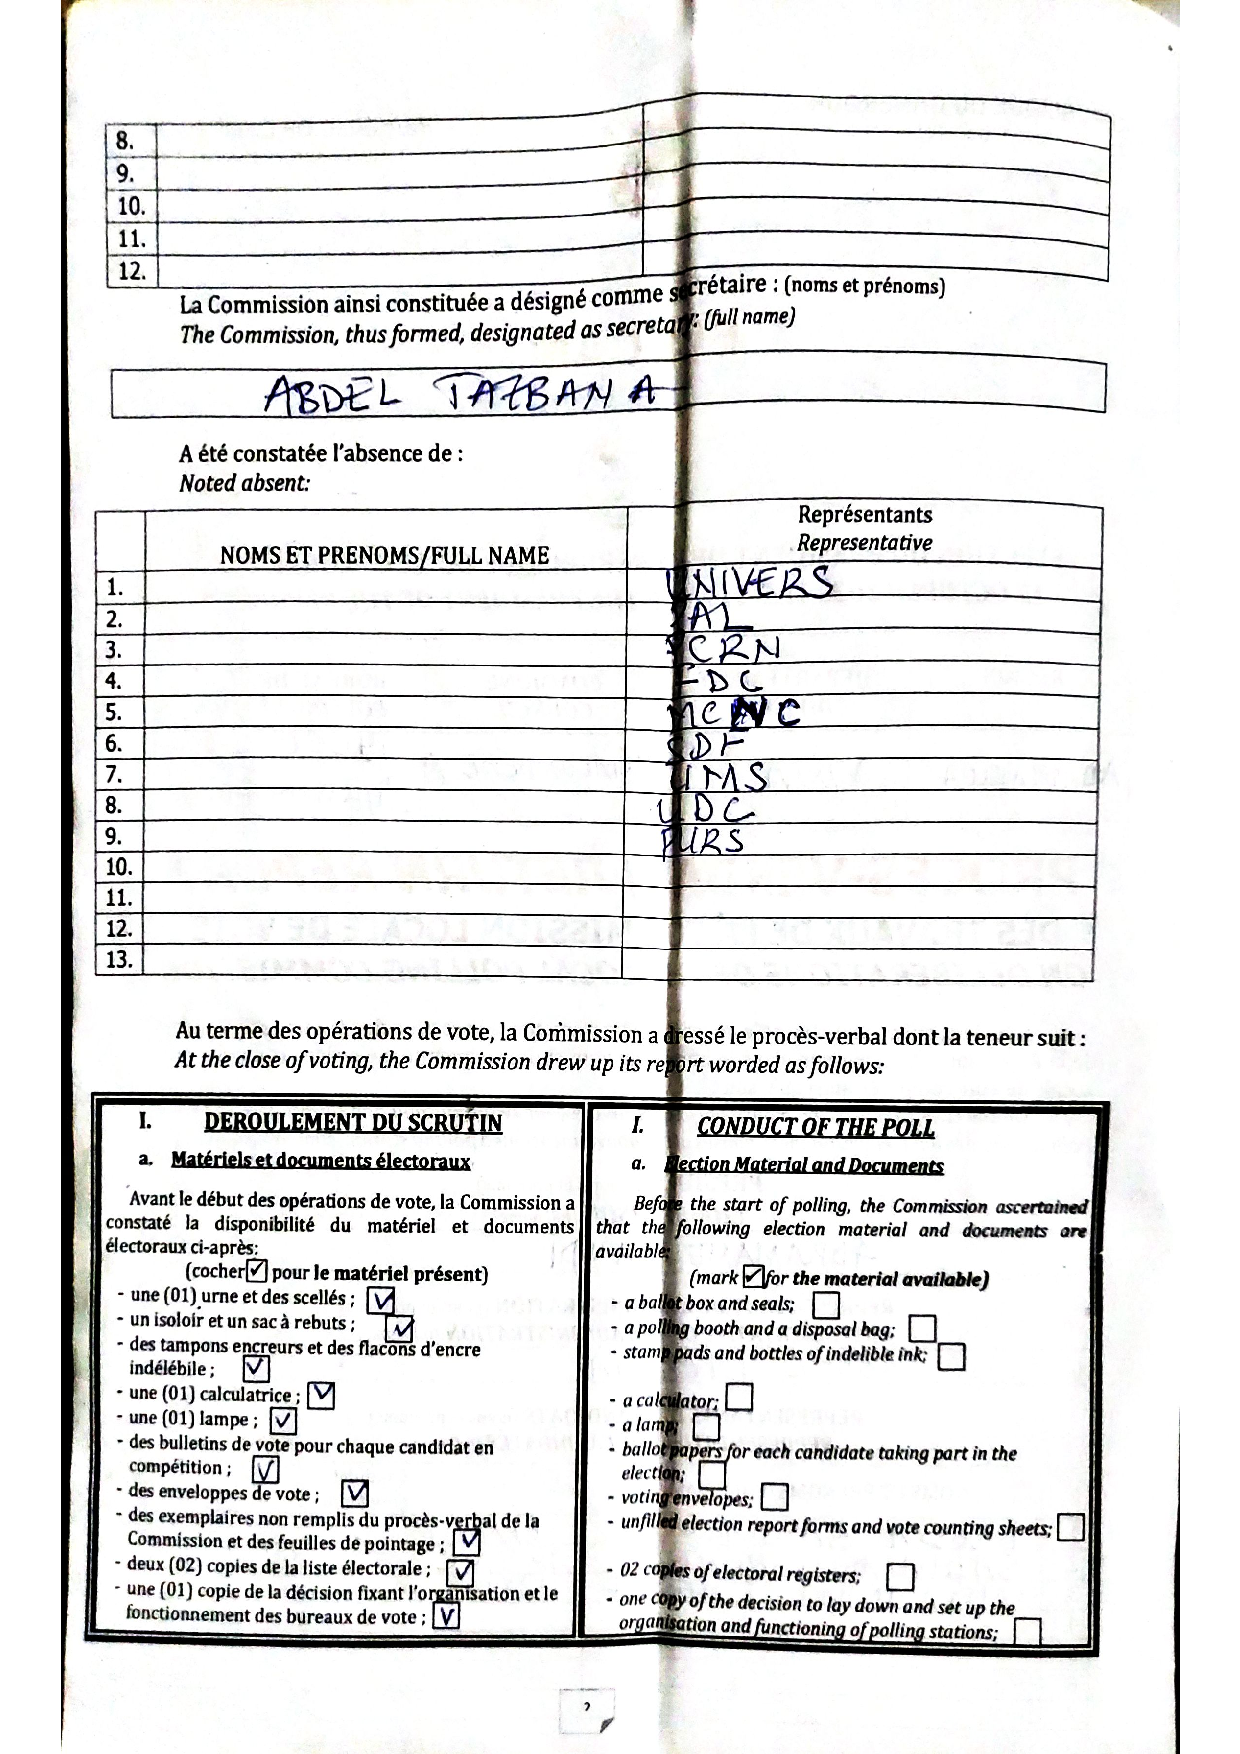 8.
9.
10.
11.
12.
La Commission ainsi constituée a désigné comme secrétaire : (noms et prénoms)
The Commission, thus formed, designated as secretary: (full name)
ABDEL TAZBANA
A été constatée l'absence de :
Noted absent:
NOMS ET PRENOMS/FULL NAME
Représentants
Representative
1. UNIVERS
2.
3.
4.
5.
6. SDF
7. UMS
8. UDC
9. PURS
10.
11.
12.
13.
Au terme des opérations de vote, la Commission a dressé le procès-verbal dont la teneur suit :
At the close of voting, the Commission drew up its report worded as follows:
I. DEROULEMENT DU SCRUTIN
a. Matériels et documents électoraux
Avant le début des opérations de vote, la Commission a
constaté la disponibilité du matériel et documents
électoraux ci-après:
(cocher ✓ pour le matériel présent)
- une (01) urne et des scellés ; ✓
- un isoloir et un sac à rebuts ; ✓
- des tampons encreurs et des flacons d'encre
indélébile ; ✓
- une (01) calculatrice ; ✓
- une (01) lampe ; ✓
- des bulletins de vote pour chaque candidat en
compétition ; ✓
- des enveloppes de vote ; ✓
- des exemplaires non remplis du procès-verbal de la
Commission et des feuilles de pointage ; ✓
- deux (02) copies de la liste électorale ; ✓
- une (01) copie de la décision fixant l'organisation et le
fonctionnement des bureaux de vote ; ✓
I. CONDUCT OF THE POLL
a. Election Material and Documents
Before the start of polling, the Commission ascertained
that the following election material and documents are
available:
(mark ✓ for the material available)
- a ballot box and seals;
- a polling booth and a disposal bag;
- stamp pads and bottles of indelible ink;
- a calculator;
- a lamp;
- ballot papers for each candidate taking part in the
election;
- voting envelopes;
- unfilled election report forms and vote counting sheets;
- 02 copies of electoral registers;
- one copy of the decision to lay down and set up the
organisation and functioning of polling stations;
2